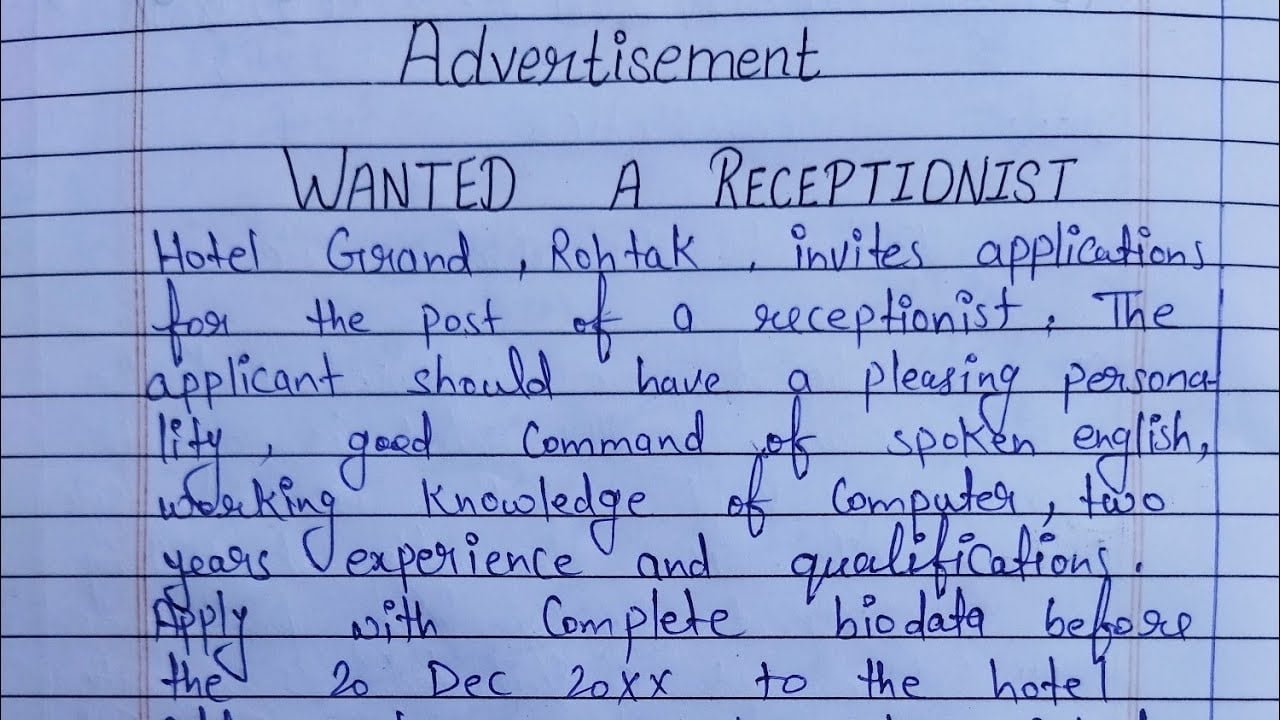 Advertisement
WANTED A RECEPTIONIST
Hotel Grand, Rohtak, invites applications
for the post of a receptionist. The
applicant should have a pleasing persona-
lity, good command of spoken english,
working knowledge of computer, two
years experience and qualifications.
Apply with complete biodata before
the 20 Dec 20XX to the hotel